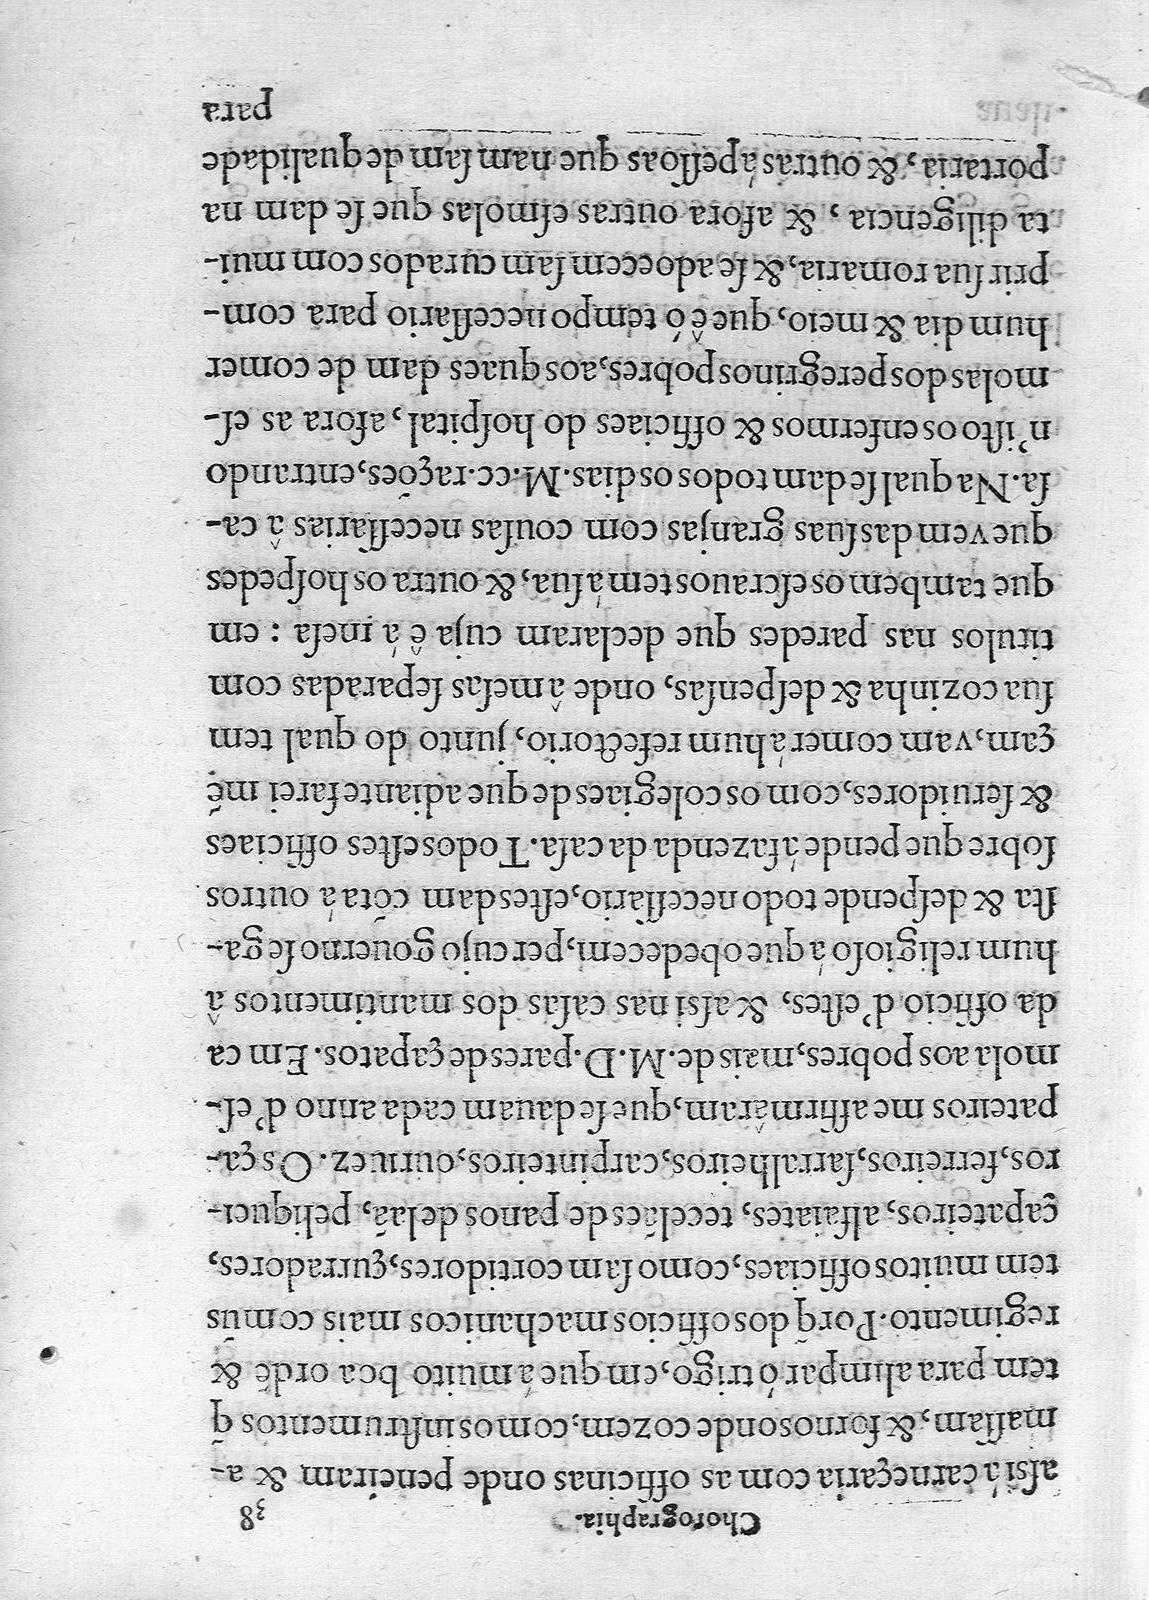 Chorographia. 38
aſsi á carneçaria com as officinas onde peneiram & a-
maſſam, & fornos onde cozem, com os inſtrumentos q̃
tem para alimpar ó trigo, em que á muito boa ordẽ &
regimento. Porq̃ dos officios machanicos mais comũs
tem muitos officiaes, como ſam cortidores, çurradores,
çapateiros, alfaiates, tecelães de panos de laã, peliquei-
ros, ferreiros, ſarralheiros, carpinteiros, ouriuez. Os ça-
pateiros me affirmâram, que ſe dauam cada anno d'eſ-
mola aos pobres, mais de. M. D. pares de çapatos. Em ca
da officio d'eſtes, & aſsi nas caſas dos mantimentos â
hum religioſo á que obedecem, per cujo gouerno ſe ga-
ſta & deſpende todo neceſſario, eſtes dam cõta á outros
ſobre que pende á fazenda da caſa. Todos eſtes officiaes
& ſeruidores, com os colegiaes de que adiante farei mẽ
çam, vam comer á hum refectorio, junto do qual tem
ſua cozinha & deſpenſas, onde â meſas ſeparadas com
titulos nas paredes que declaram cuja ê á meſa : em
que tambem os eſcrauos tem á ſua, & outra os hoſpedes
que vem das ſuas granjas com couſas neceſſarias â ca-
ſa. Na qual ſe dam todos os dias. M. cc. rações, entrando
n'iſto os enfermos & officiaes do hoſpital, afora as eſ-
molas dos peregrinos pobres, aos quaes dam de comer
hum dia & meio, que ê ó tempo neceſſario para com-
prir ſua romaria, & ſe adoecem ſam curados com mui-
ta diligencia, & afora outras eſmolas que ſe dam na
portaria, & outras á peſſoas que nam ſam de qualidade
para